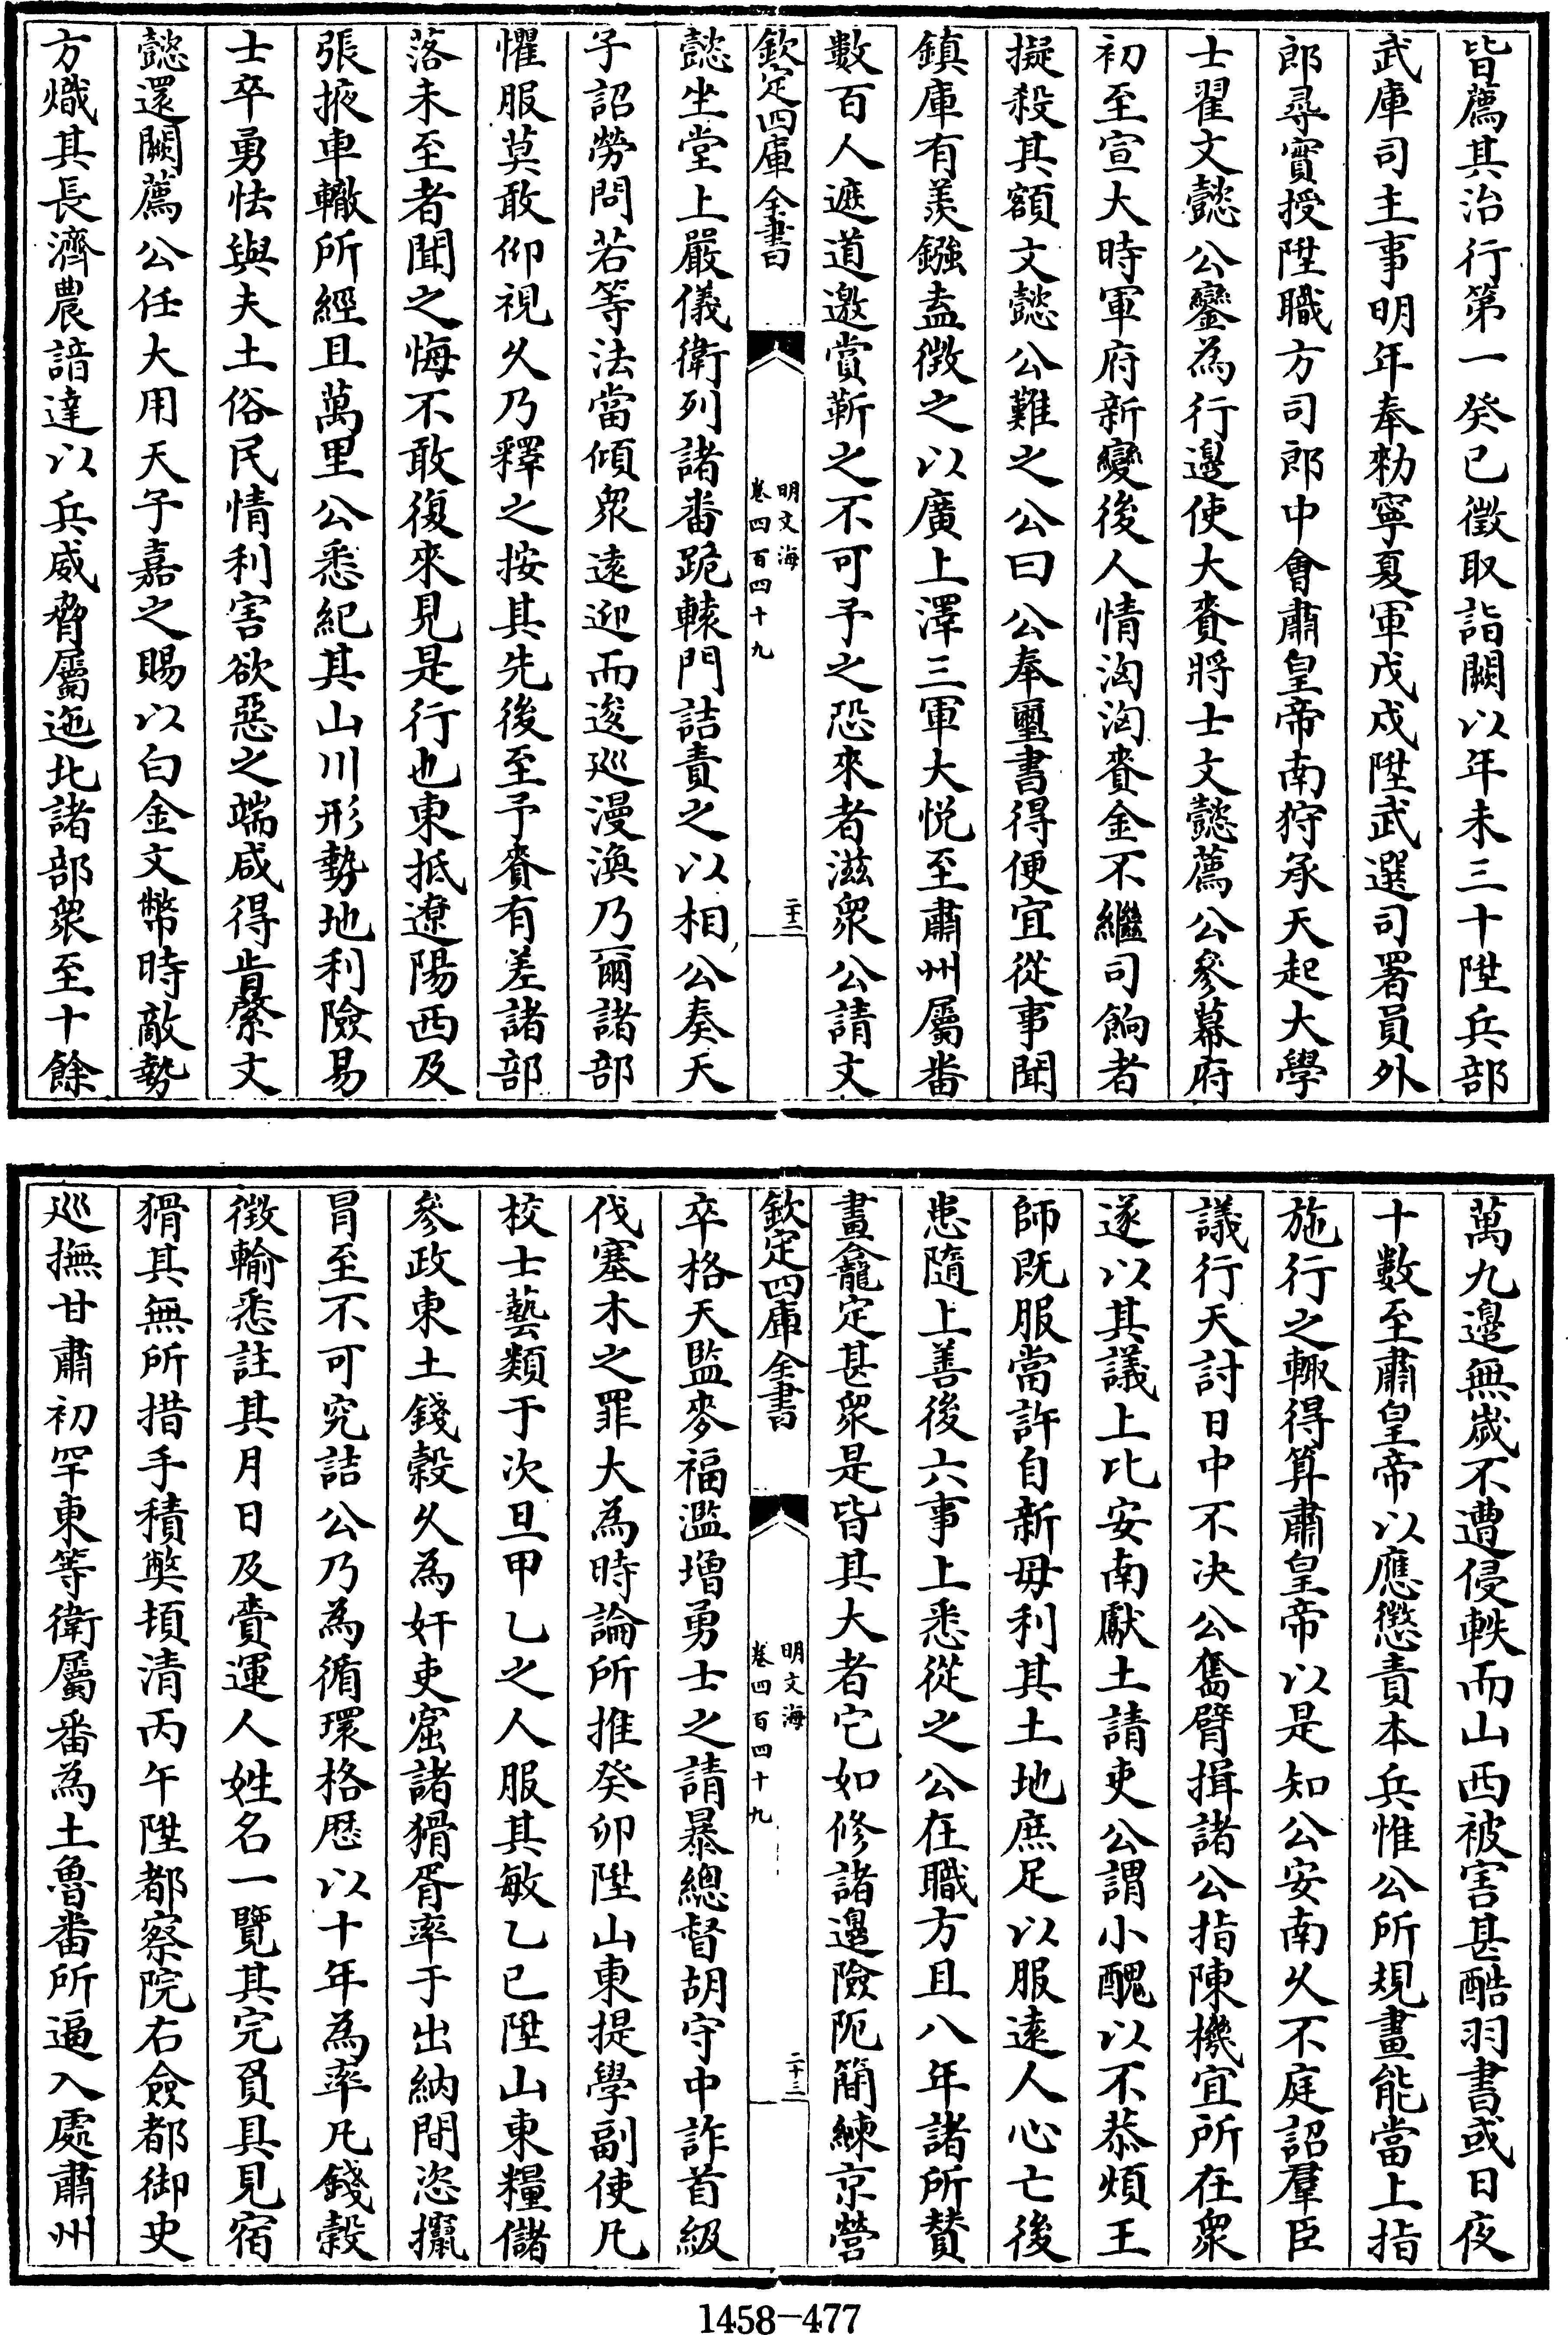 皆薦其治行第一癸已徴取詣闕以年未三十陞兵部
武庫司主事明年奉勑寧夏軍戊戍陞武選司署員外
郎尋實授陞職方司郎中會肅皇帝南狩承天起大學
士翟文懿公鑾為行邊使大賚將士文懿薦公參幕府
初至宣大時軍府新變後人情洶洶賚金不繼司餉者
擬殺其額文懿公難之公曰公奉璽書得便宜從事聞
鎮庫有羡鏹盍徴之以廣上澤三軍大悦至肅州屬番
數百人遮道邀賞靳之不可予之恐來者滋衆公請文
欽定四庫全書
明文海
卷四百四十九
二十二
懿坐堂上嚴儀衛列諸番跪轅門詰責之以相公奏天
子詔勞問若等法當傾衆遠迎而逡巡漫渙乃爾諸部
懼服莫敢仰視久乃釋之按其先後至予賚有差諸部
落未至者聞之悔不敢復來見是行也東抵遼陽西及
張掖車轍所經且萬里公悉紀其山川形勢地利險易
士卒勇怯與夫土俗民情利害欲惡之端咸得肯綮文
懿還闕薦公任大用天子嘉之賜以白金文幣時敵勢
方熾其長濟農諳達以兵威脅屬迤北諸部衆至十餘
萬九邊無嵗不遭侵軼而山西被害甚酷羽書或日夜
十數至肅皇帝以應懲責本兵惟公所規畫能當上指
施行之輙得算肅皇帝以是知公安南久不庭詔羣臣
議行天討日中不决公奮臂揖諸公指陳機宜所在衆
遂以其議上比安南獻土請吏公謂小醜以不恭煩王
師既服當許自新毋利其土地庶足以服遠人心亡後
患隨上善後六事上悉從之公在職方且八年諸所賛
畫龕定甚衆是皆其大者它如修諸邊險阨簡練京營
欽定四庫全書
明文海
卷四百四十九
二十三
卒格天監麥福濫增勇士之請暴總督胡守中詐首級
伐塞木之罪大為時論所推癸卯陞山東提學副使凡
校士藝類于次旦甲乙之人服其敏乙已陞山東糧儲
參政東土錢穀久為奸吏窟諸猾胥率于出納間恣攛
冐至不可究詰公乃為循環格厯以十年為率凡錢穀
徴輸悉註其月日及賫運人姓名一覽其完負具見宿
猾其無所措手積弊頓清丙午陞都察院右僉都御史
巡撫甘肅初罕東等衛屬番為土魯番所逼入處肅州
1458-477